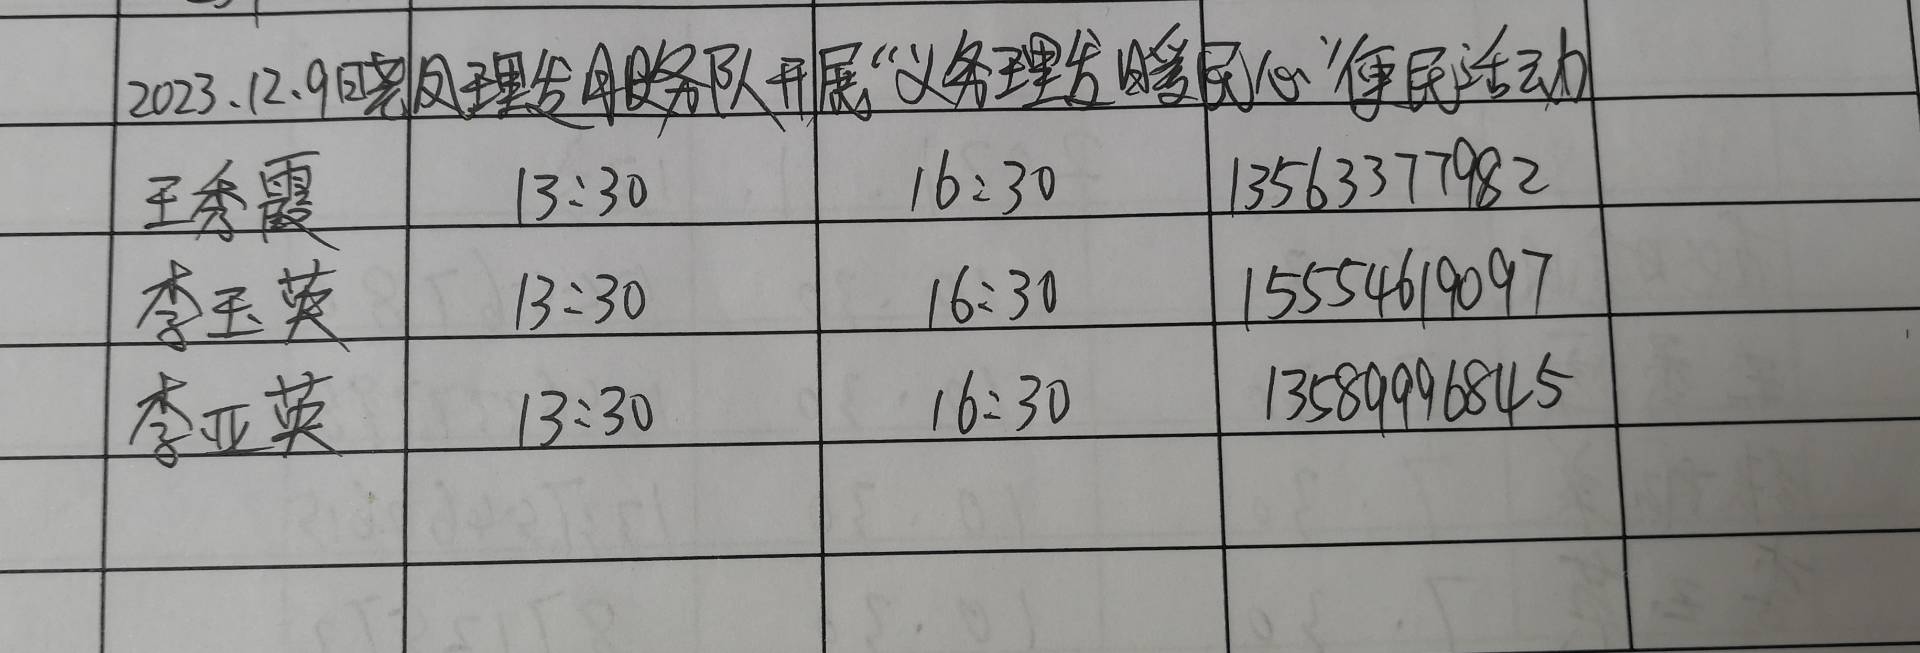 2023.12.9日晓风理发服务队开展“义务理发暖民心”便民活动
王秀霞 13:30 16:30 13563377982
李玉英 13:30 16:30 15554619097
李亚英 13:30 16:30 13589996845